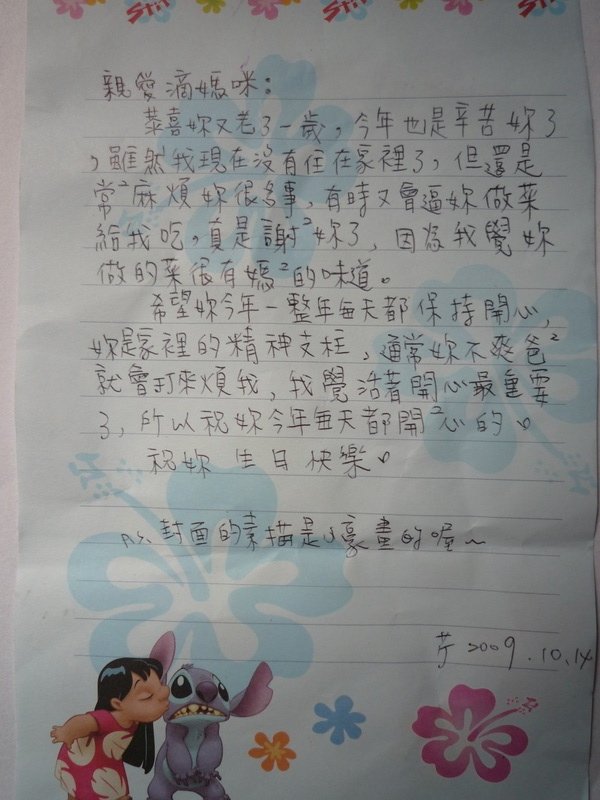 Stit
親愛滴媽咪：
恭喜妳又老了一歲，今年也是辛苦妳了
，雖然我現在沒有住在家裡了，但還是
常²麻煩妳很多事，有時又會逼妳做菜
給我吃，真是謝²妳了，因為我覺妳
做的菜很有媽²的味道。
希望妳今年一整年每天都保持開心，
妳是家裡的精神支柱，通常妳不爽爸²
就會打來煩我，我覺活著開心最重要
了，所以祝妳今年每天都開²心的。
祝妳 生日快樂。
P.S. 封面的素描是小豪畫的喔~
芳 2009.10.14